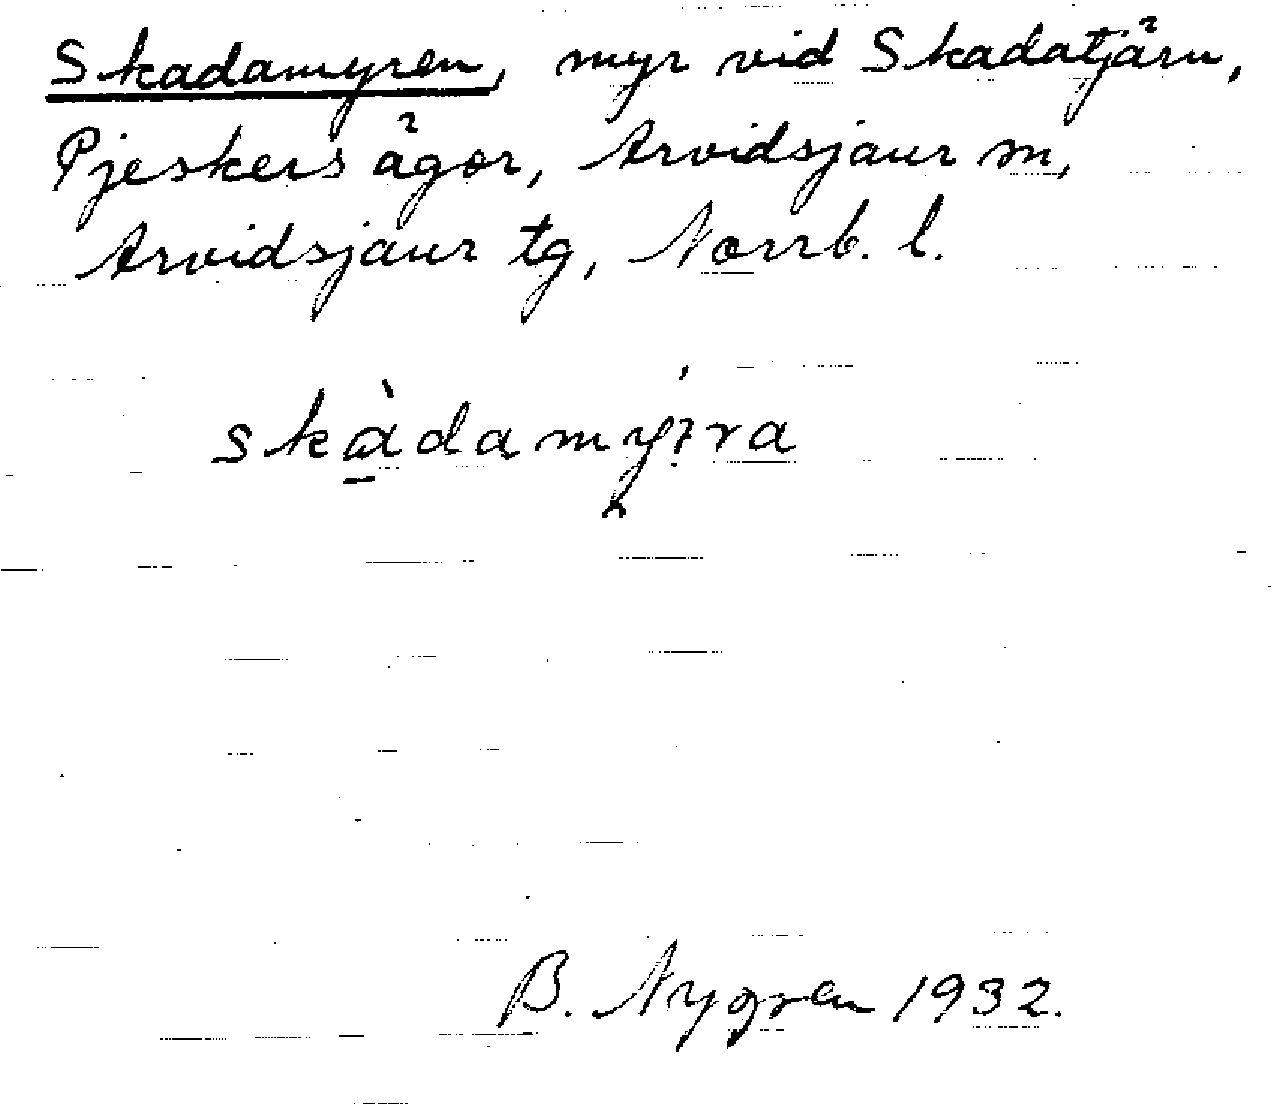 Skadamyren, myr vid Skadatjärn,
Pjeskers ägor, Arvidsjaur sn,
Arvidsjaur tg, Norrb. l.
skàdamýra
B. Nygren 1932.